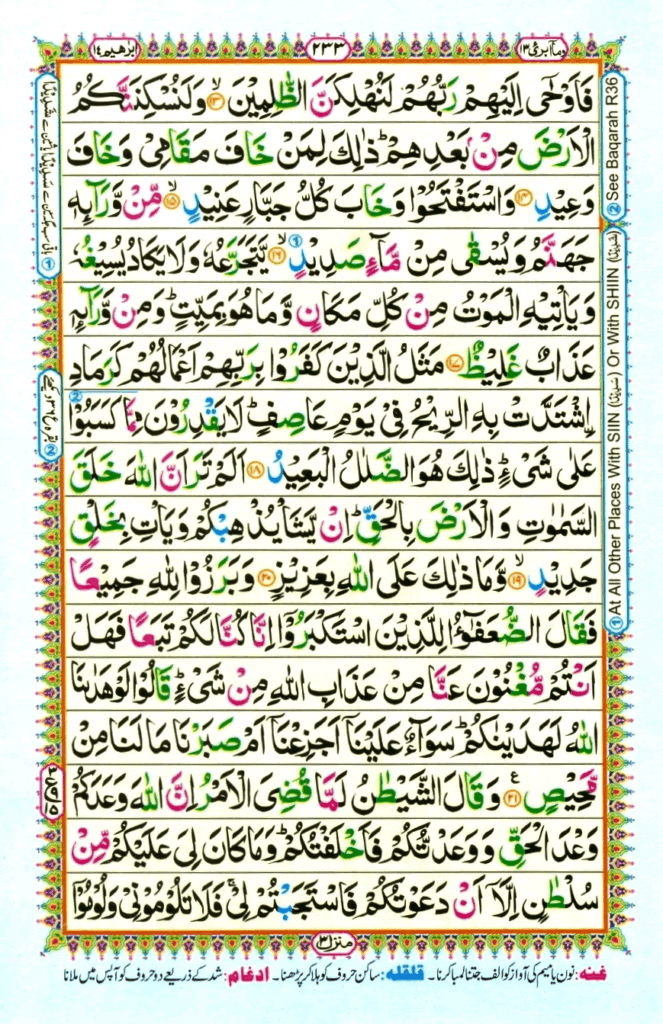 وما ابرئ ۱۳
۲۳۳
ابرٰهيم ۱۴
فَاَوْحٰۤى اِلَيْهِمْ رَبُّهُمْ لَنُهْلِكَنَّ الظّٰلِمِيْنَ ۙ‏﴿۱۳﴾ وَلَنُسْكِنَنَّكُمُ
الْاَرْضَ مِنْۢ بَعْدِهِمْ‌ؕ ذٰلِكَ لِمَنْ خَافَ مَقَامِىْ وَخَافَ
وَعِيْدِ‏﴿۱۴﴾ وَاسْتَفْتَحُوْا وَخَابَ كُلُّ جَبَّارٍ عَنِيْدٍۙ‏﴿۱۵﴾ مِّنْ وَّرَآٮِٕهٖ
جَهَنَّمُ وَيُسْقٰى مِنْ مَّآءٍ صَدِيْدٍۙ‏﴿۱۶﴾ يَّتَجَرَّعُهٗ وَلَا يَكَادُ يُسِيْغُهٗ
وَيَاْتِيْهِ الْمَوْتُ مِنْ كُلِّ مَكَانٍ وَّمَا هُوَ بِمَيِّتٍ‌ؕ وَمِنْ وَّرَآٮِٕهٖ
عَذَابٌ غَلِيْظٌ‏﴿۱۷﴾ مَثَلُ الَّذِيْنَ كَفَرُوْا بِرَبِّهِمْ‌ اَعْمَالُهُمْ كَرَمَادِ
۟اشْتَدَّتْ بِهِ الرِّيْحُ فِىْ يَوْمٍ عَاصِفٍ‌ؕ لَا يَقْدِرُوْنَ مِمَّا كَسَبُوْا
عَلٰى شَىْءٍ‌ؕ ذٰلِكَ هُوَ الضَّلٰلُ الْبَعِيْدُ‏﴿۱۸﴾ اَلَمْ تَرَ اَنَّ اللّٰهَ خَلَقَ
السَّمٰوٰتِ وَالْاَرْضَ بِالْحَقِّ‌ؕ اِنْ يَّشَاْ يُذْهِبْكُمْ وَيَاْتِ بِخَلْقٍ
جَدِيْدٍۙ‏﴿۱۹﴾ وَّمَا ذٰلِكَ عَلَى اللّٰهِ بِعَزِيْزٍ‏﴿۲۰﴾ وَبَرَزُوْا لِلّٰهِ جَمِيْعًا
فَقَالَ الضُّعَفٰٓؤُا لِلَّذِيْنَ اسْتَكْبَرُوْۤا اِنَّا كُنَّا لَكُمْ تَبَعًا فَهَلْ
اَنْتُمْ مُّغْنُوْنَ عَنَّا مِنْ عَذَابِ اللّٰهِ مِنْ شَىْءٍ‌ؕ قَالُوْا لَوْ هَدٰٮنَا
اللّٰهُ لَهَدَيْنٰكُمْ‌ؕ سَوَآءٌ عَلَيْنَاۤ اَجَزِعْنَاۤ اَمْ صَبَرْنَا مَا لَنَا مِنْ
مَّحِيْصٍ‏﴿۲۱﴾ وَقَالَ الشَّيْطٰنُ لَمَّا قُضِىَ الْاَمْرُ اِنَّ اللّٰهَ وَعَدَكُمْ
وَعْدَ الْحَقِّ وَوَعَدْتُّكُمْ فَاَخْلَفْتُكُمْ‌ؕ وَمَا كَانَ لِىَ عَلَيْكُمْ مِّنْ
سُلْطٰنٍ اِلَّاۤ اَنْ دَعَوْتُكُمْ فَاسْتَجَبْتُمْ لِىْ‌ۚ فَلَا تَلُوْمُوْنِىْ وَلُوْمُوْۤا
② See Baqarah R36
① At All Other Places With SIIN (سَيِّدًا) Or With SHIIN (شَيِّدًا)
منزل ۳
غنه: نون یا میم کی آواز کو الف جتنا لمبا کرنا۔ قلقله: ساکن حروف کو ہلا کر پڑھنا۔ ادغام: شد کے ذریعے دو حروف کو آپس میں ملانا